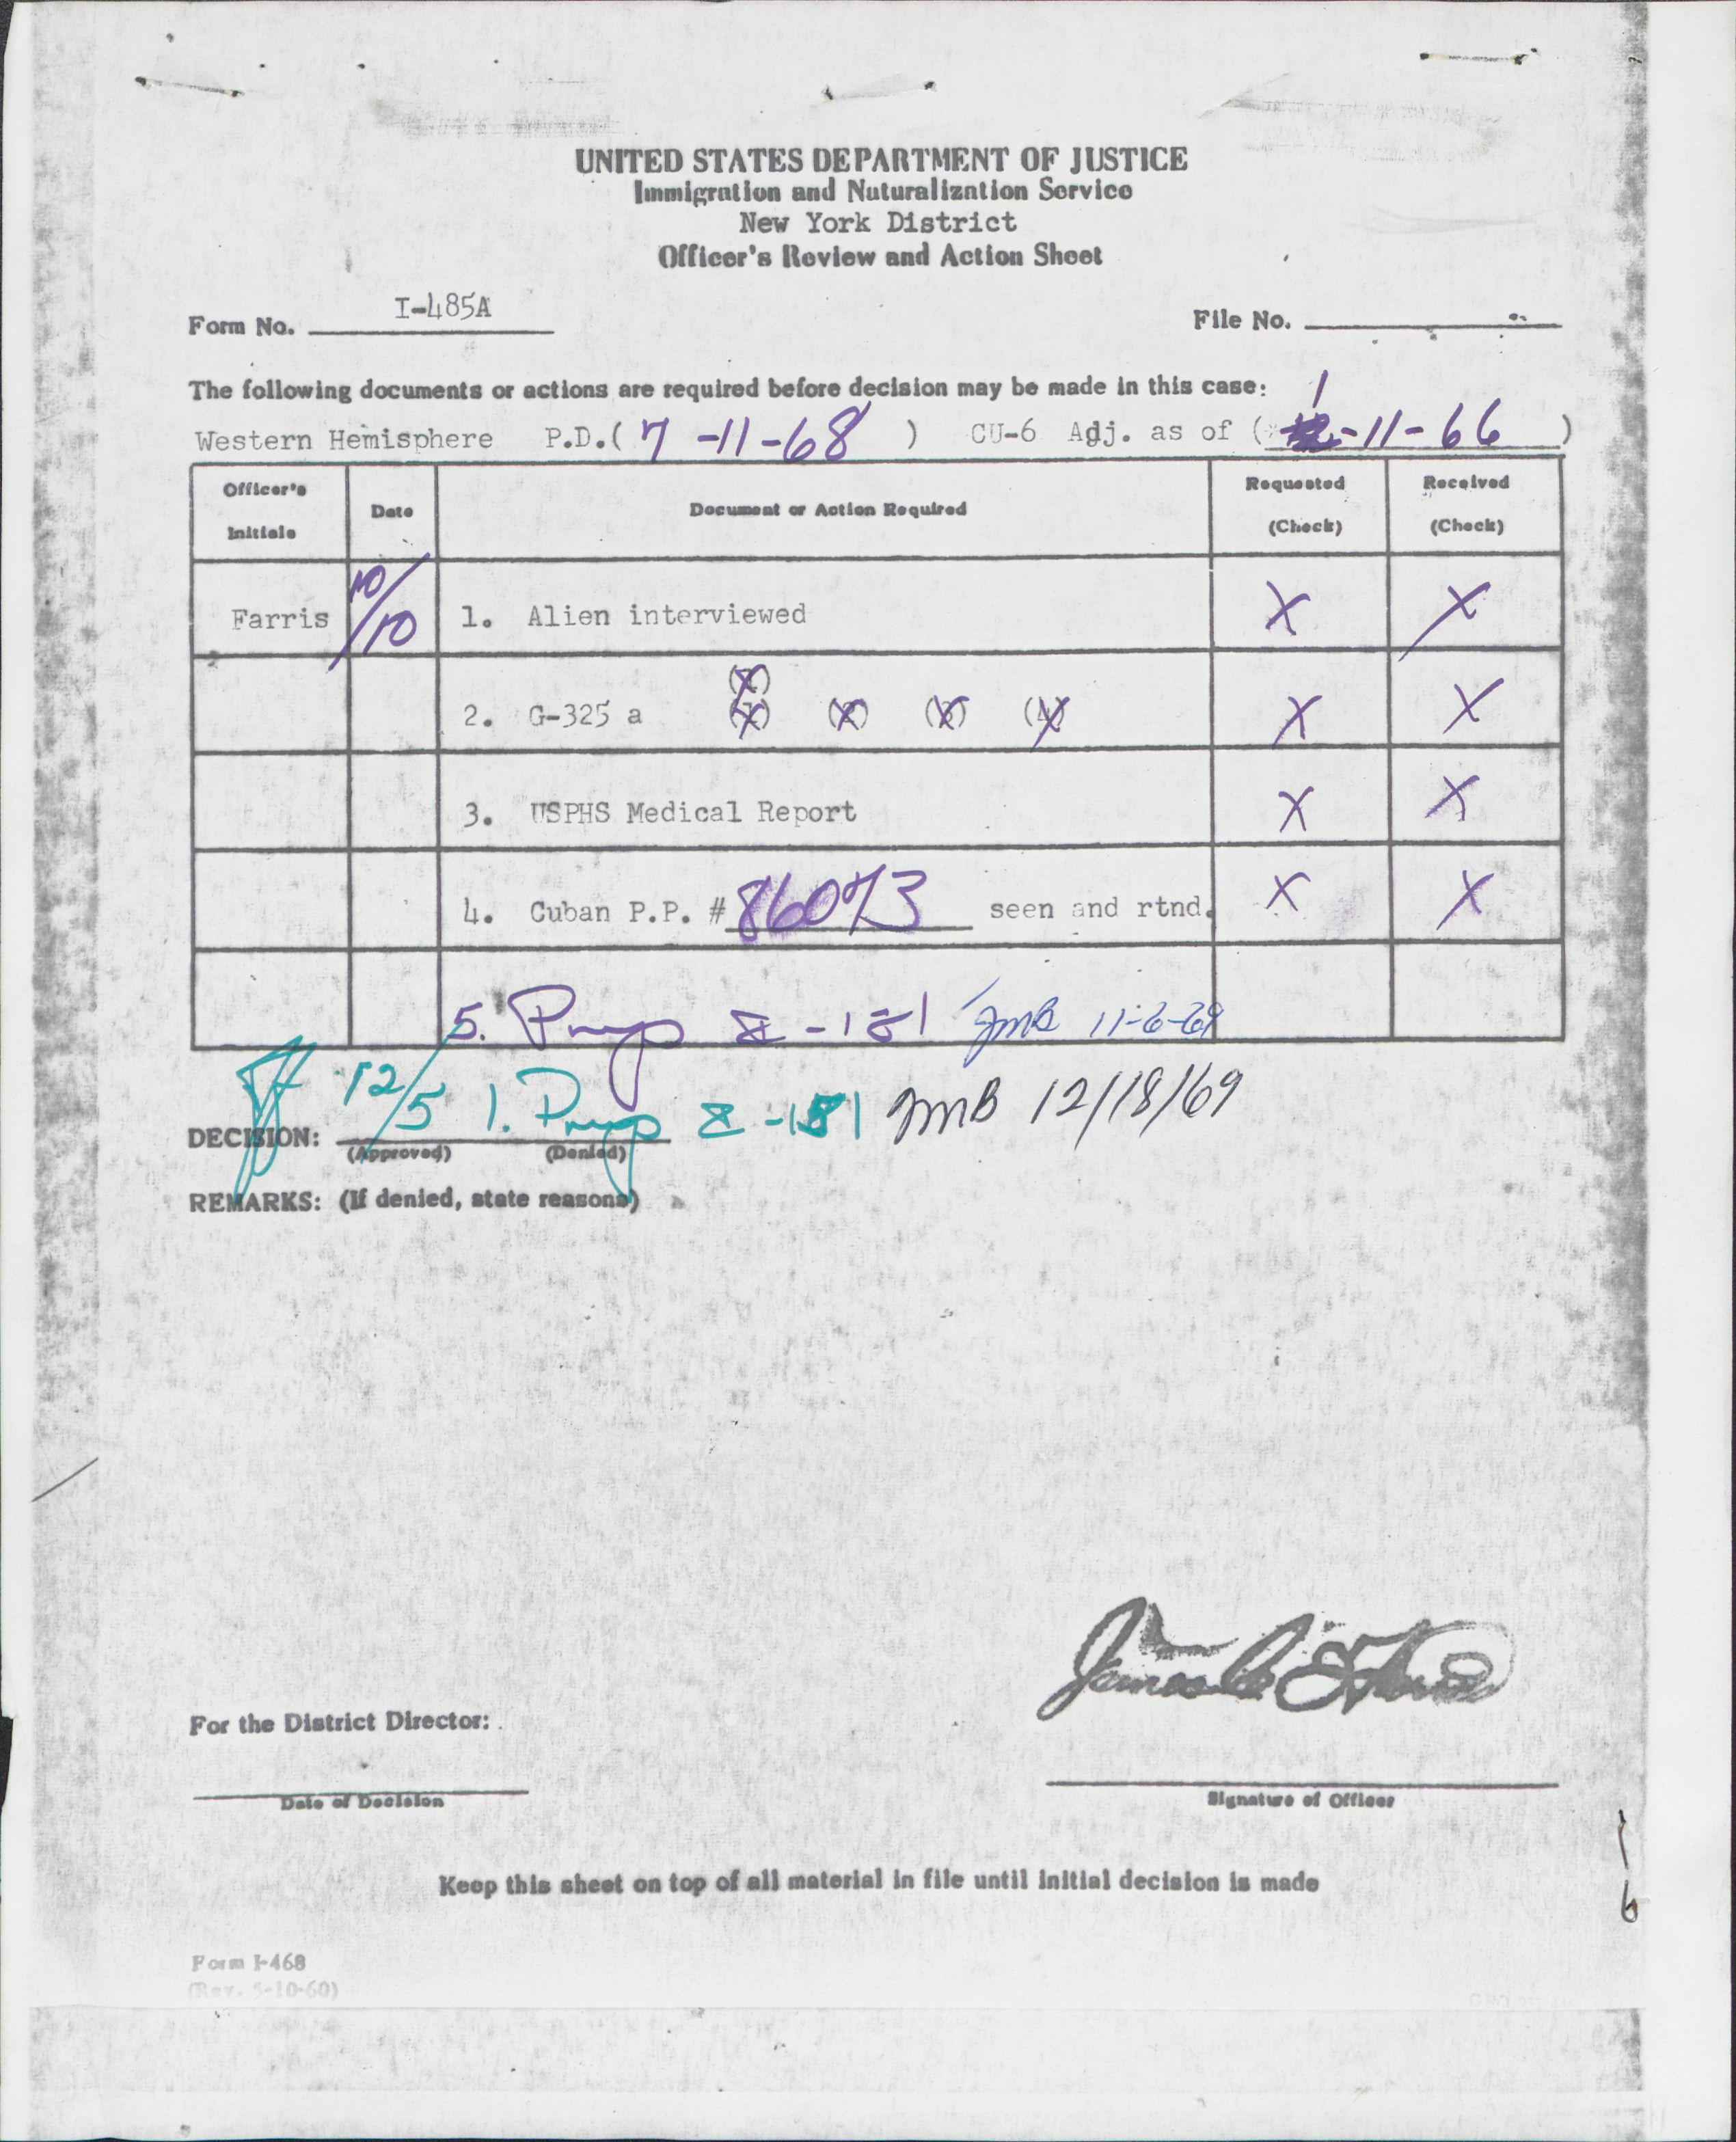 UNITED STATES DEPARTMENT OF JUSTICE
Immigration and Naturalization Service
New York District
Officer's Review and Action Sheet
Form No. I-485A
File No.
The following documents or actions are required before decision may be made in this case:
Western Hemisphere P.D.( 7-11-68 ) CU-6 Adj. as of ( 1-11-66 )
Officer's Initials Date Document or Action Required Requested (Check) Received (Check)
Farris 10/10 1. Alien interviewed X X
2. G-325 a X X
3. USPHS Medical Report X X
4. Cuban P.P. # 86073 seen and rtnd. X X
5. I-181 JMB 11-6-69
12/5 1. I-181 JMB 12/18/69
DECISION:
(Approved) (Denied)
REMARKS: (If denied, state reasons)
For the District Director:
James
Date of Decision
Signature of Officer
Keep this sheet on top of all material in file until initial decision is made
Form I-468
(Rev. 5-10-60)